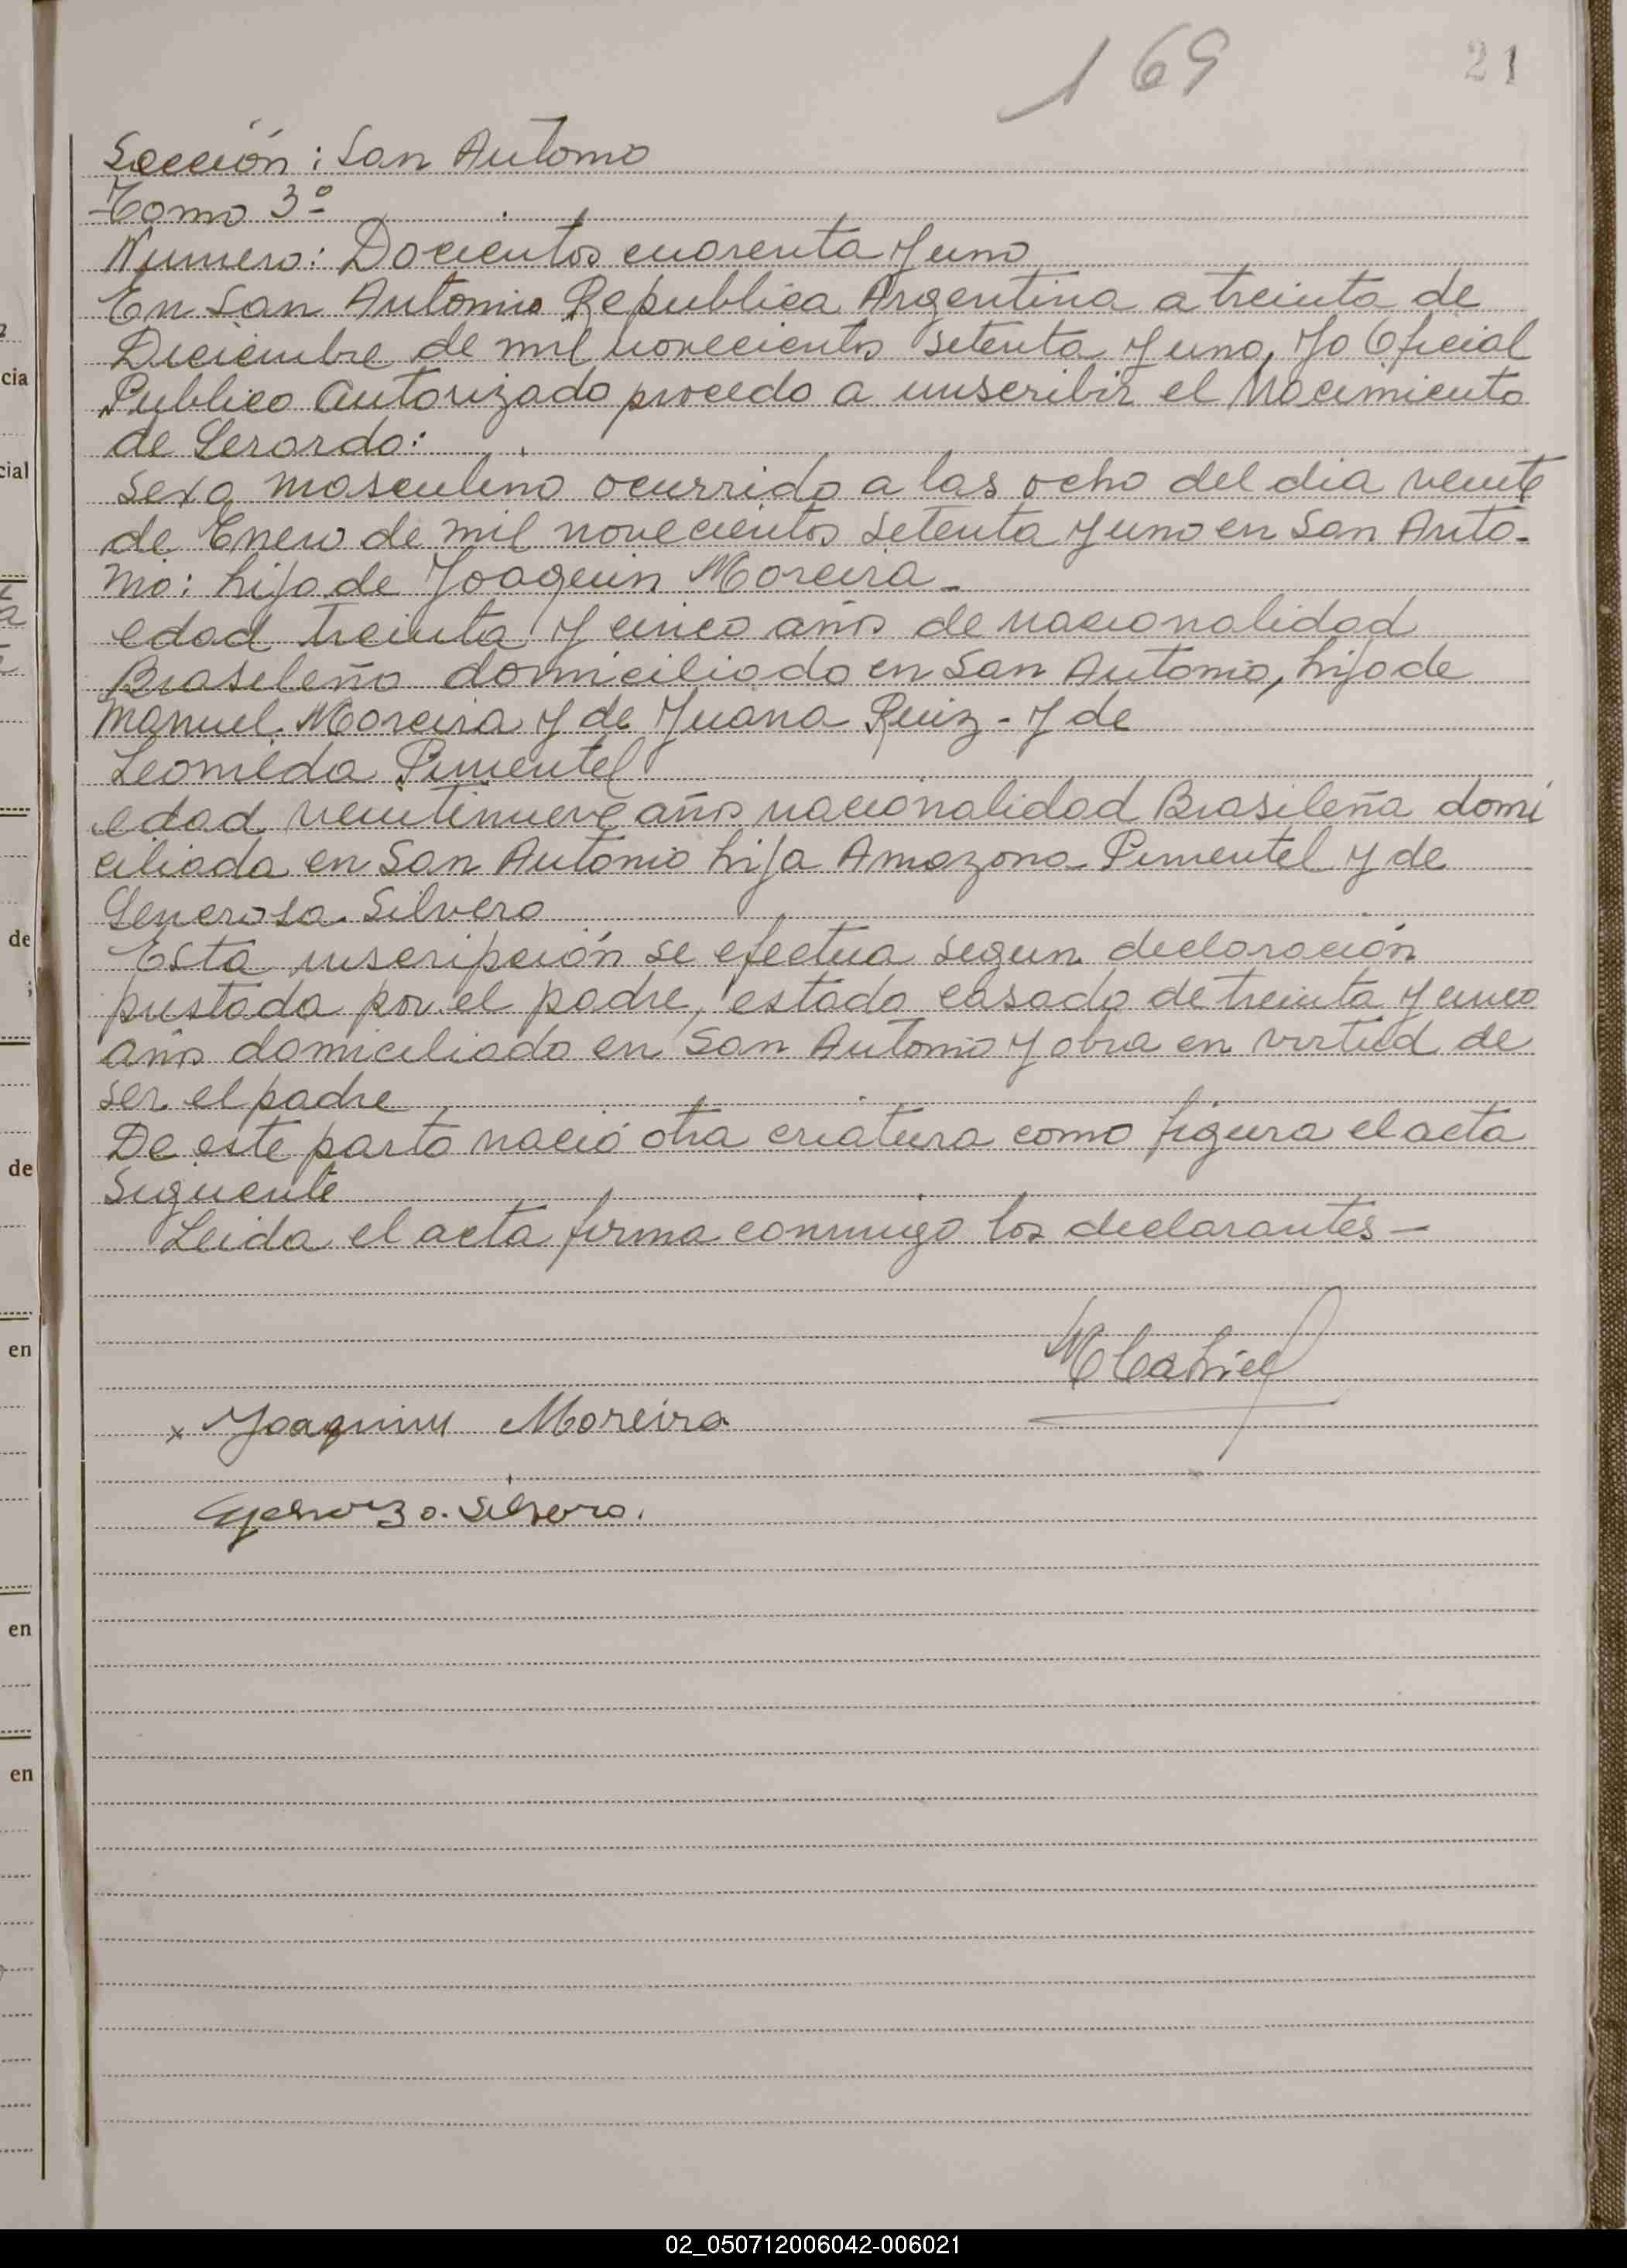 169
21
Sección: San Antonio
Tomo 3º
Numero: Docientos cuarenta y uno
En San Antonio Republica Argentina a treinta de
Diciembre de mil novecientos setenta y uno, Yo Oficial
Publico autorizado procedo a inscribir el Nacimiento
de Gerardo:
sexo masculino ocurrido a las ocho del dia veinte
de Enero de mil novecientos setenta y uno en San Anto-
nio: hijo de Joaquin Moreira-
edad treinta y cinco años de nacionalidad
Brasileña domiciliado en San Antonio, hijo de
Manuel Moreira y de Juana Ruiz - y de
Leonilda Pimentel
edad veintinueve años nacionalidad Brasileña domi
ciliada en San Antonio hija Amazona Pimentel y de
Generosa Silvero
Esta inscripción se efectua segun declaración
prestada por el padre, estado casado de treinta y cinco
años domiciliado en San Antonio y obra en virtud de
ser el padre
De este parto nació otra criatura como figura el acta
siguiente
Leida el acta firma conmigo los declarantes-
x Joaquim Moreira
Silvero.
cia
cial
de
de
en
en
en
02_050712006042-006021